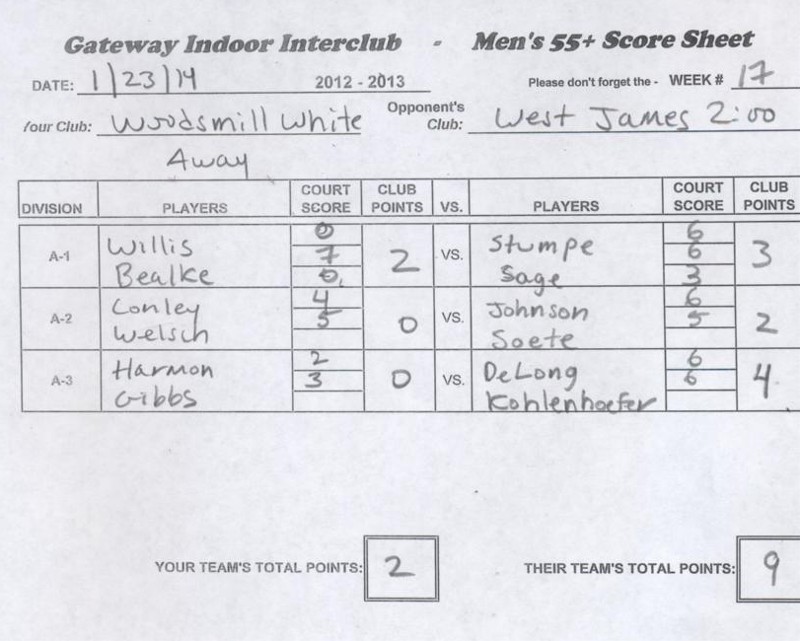 Gateway Indoor Interclub - Men's 55+ Score Sheet
DATE: 1/23/14 2012 - 2013 Please don't forget the - WEEK # 17
Your Club: Woodsmill White Opponent's Club: West James 2:00
Away
DIVISION PLAYERS COURT SCORE CLUB POINTS VS. PLAYERS COURT SCORE CLUB POINTS
A-1 Willis Bealke 0 7 0 2 VS. Stumpe Sage 6 6 3 3
A-2 Conley Welsch 4 5 0 VS. Johnson Soete 6 5 2
A-3 Harmon Gibbs 2 3 0 VS. DeLong Kohlenhoefer 6 6 4
YOUR TEAM'S TOTAL POINTS: 2 THEIR TEAM'S TOTAL POINTS: 9